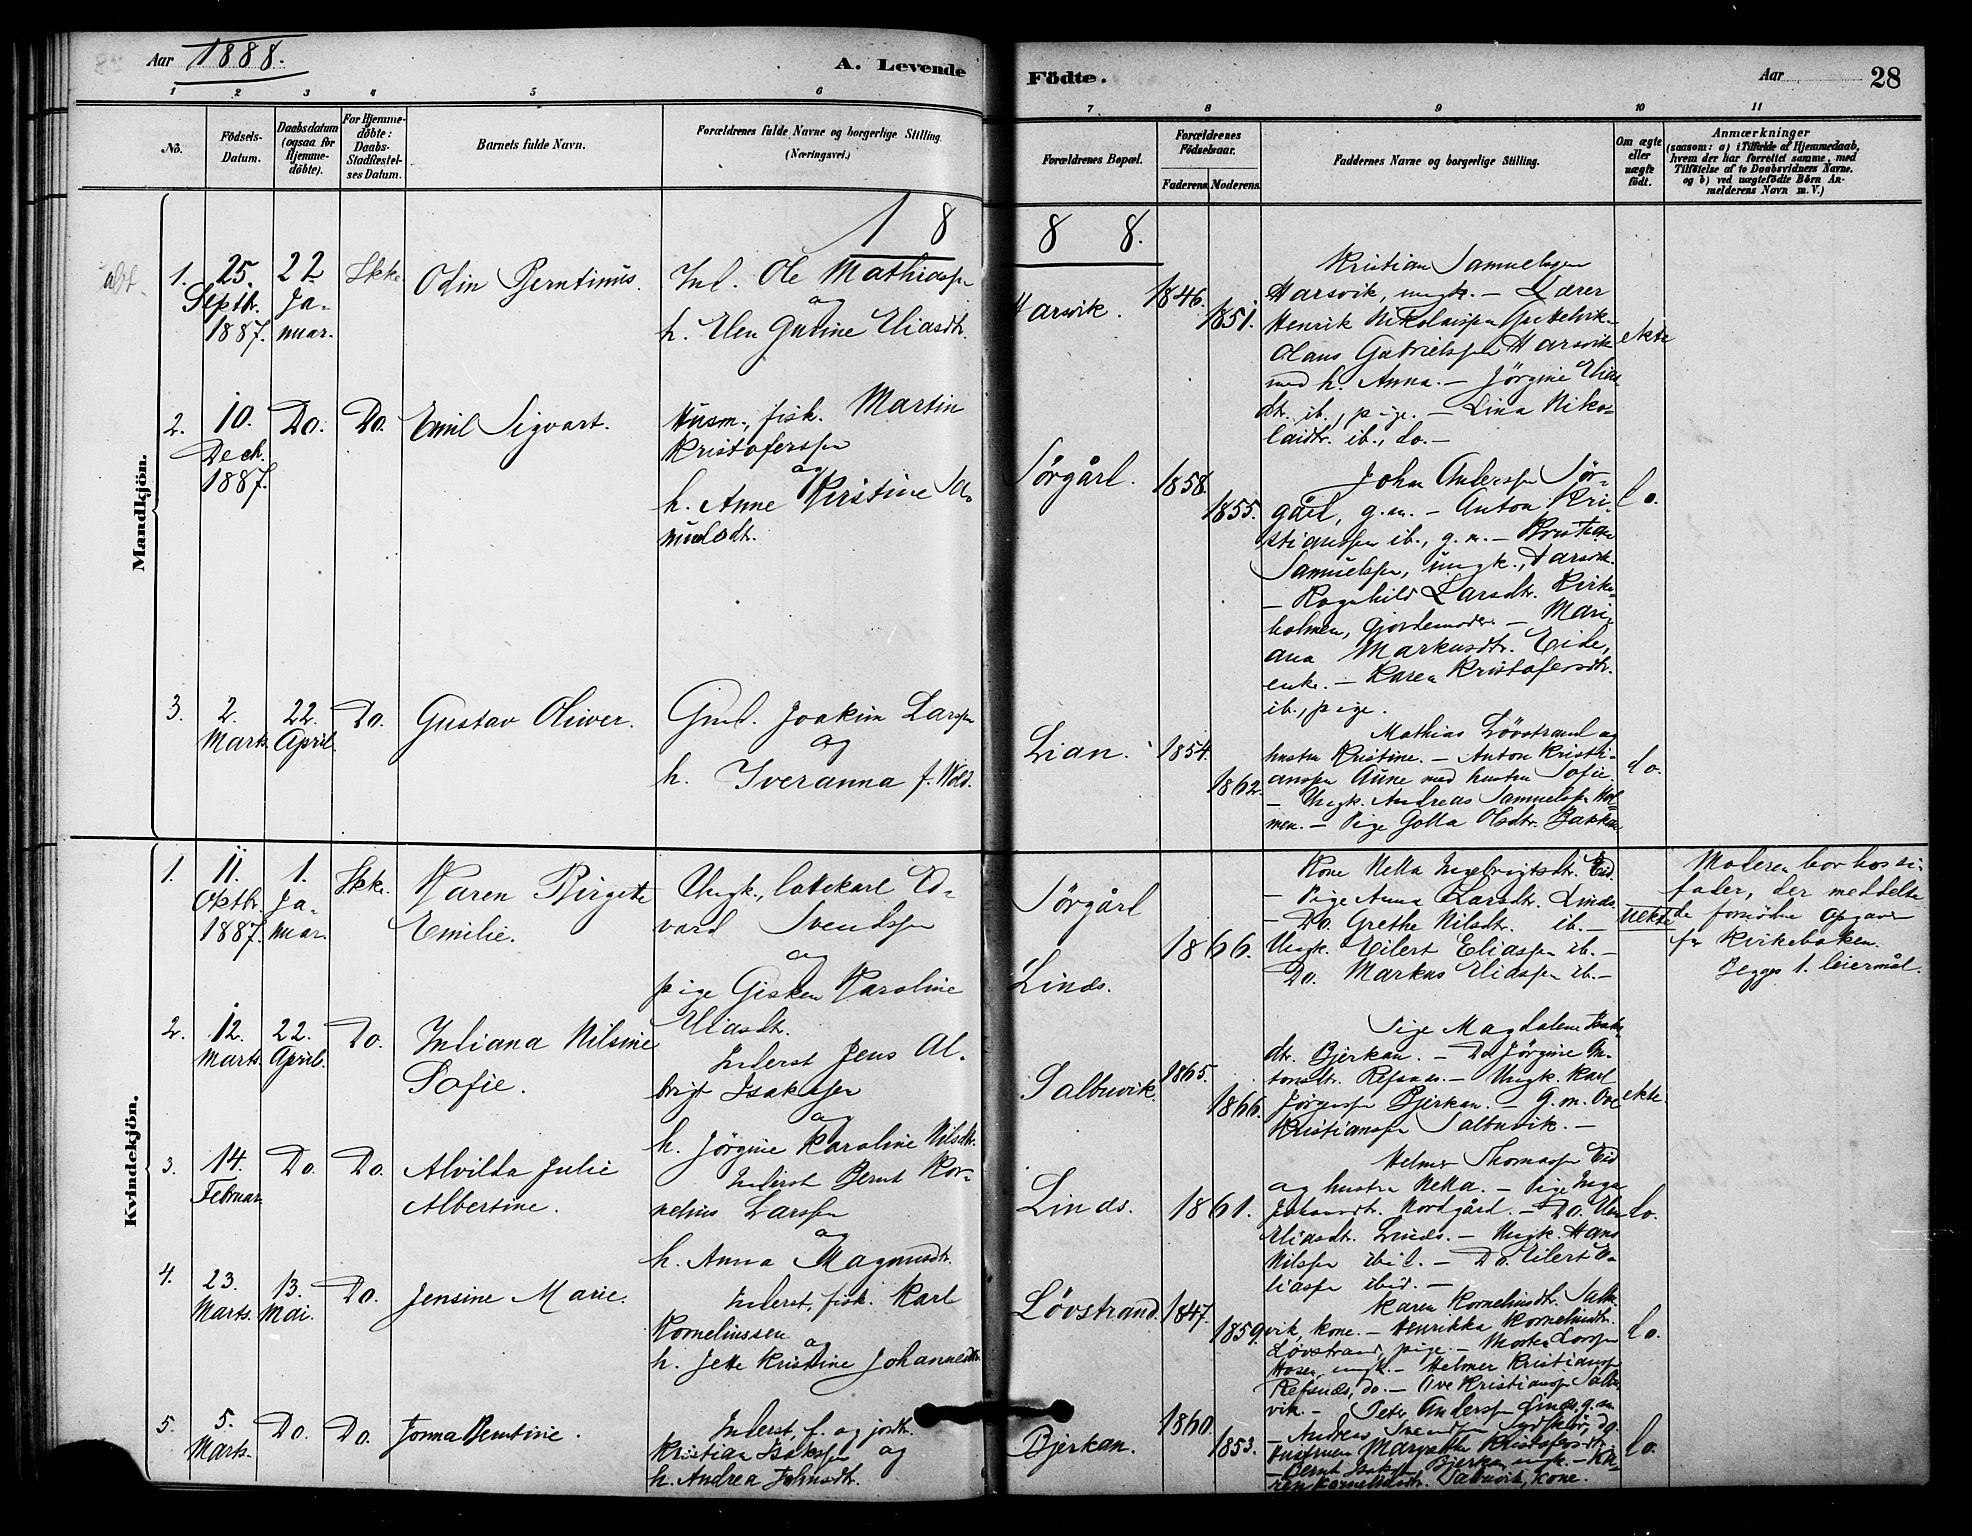 Aar 1888.
A. Levende
Födte.
Aar
28
1 2 3 4 5 6 7 8 9 10 11
No.
Födsels-
Datum.
Daabsdatum
(ogsaa for
Hjemme-
döbte).
For Hjemme-
döbte:
Daabs-
Stadfæstel-
ses Datum.
Barnets fulde Navn.
Forældrenes fulde Navne og borgerlige Stilling.
(Næringsvei.)
Forældrenes Bopæl.
Forældrenes
Födselsaar.
Faderens. Moderens.
Faddernes Navne og borgerlige Stilling.
Om ægte
eller
uægte
födt.
Anmærkninger
(saasom: a) i Tilfælde af Hjemmedaab,
hvem der har forrettet samme, med
Tilföielse af to Daabsvidners Navne.
og b) ved uægtefödte Börn An-
melderens Navn m. V.)
1 8 8 8.
Mandkjön.
1.
25.
Septbr.
1887.
22
Ja-
nuar.
Ikke
Odin Berntinus.
Ind. Ole Mathiassen
og
h. Elen Gurine Eliasdtr.
Harsvik.
1846.
1851.
Kristian Samuelsen
Harsvik, ungk. – Lærer
Henrik Nikolaissen
Olaus Gabrielssen Harsvik
med h. Anna. – Jørgine Elias
dtr. ib., pige. – Lina Niko-
laidtr. ib., do. –
ekte
2.
10.
Decb.
1887.
Do.
Do.
Emil Sigvart.
Husm., fisk. Martin
Kristoferssen
og
h. Anne Kirstine Sa-
muelsdtr.
Sørgård.
1858.
1855.
John Anderssen Sør-
gård, g.m. – Anton Kri-
stianssen ib., g.m. – Kristian
Samuelssen, ungk., Harsvik.
– Ragnhild Larsdtr. Kirk-
holmen, Gjordemoder – Mari-
ana Markusdtr. Eide,
enke. – Karen Kristofersdtr.
ib., pige.
do.
3.
2.
Marts.
22.
April.
Do.
Gustav Oliver.
Gmd. Joakim Larssen
og
h. Iveranna f. Wold.
Lian.
1854.
1862.
Mathias Løvstrand og
hustru Kristine. – Anton Kristi-
anssen Aune med hustru Sofie.
– Ungk. Andreas Samuelssen Hol-
men. – Pige Golla Olsdtr. Bakken
do.
Kvindekjön.
1.
11.
Oktbr.
1887.
1.
Ja-
nuar.
Ikke.
Karen Birgete
Emilie.
Ungk., lottekarl Ed-
vard Svendssen
og
pige Gisken Karoline
Eliasdtr.
Sørgård
Linds.
1866.
Kone Nella Ingebrigtsdtr. Eid.
– Pige Anna Larsdtr. Linds.
– Do. Grethe Nilsdtr. ib. –
Ungk. Eilert Eliassen ib. –
Do. Markus Eliassen ib. –
uekte
Moderen bor hos si-
fader, der meddelte
de fornødne opgaver
for kirkeboken.
Begges 1. leiermål.
2.
12.
Marts.
22.
April.
Do.
Juliana Nilsine
Sofie.
Inderst Jens Al-
brigt Isaksen
og
h. Jörgine Karoline Nilsdtr.
Salbuvik.
1865.
1866.
Pige Magdalene Isaks
dtr. Bjerkan. – Do Jörgine An-
tonsdtr. Refsnes. – Ungk. Karl
Jørgenssen Bjerkan. – G.m. Ove
Kristianssen Salbuvik. –
ekte.
3.
14.
Februar.
Do.
Do.
Alvilda Julie
Albertine.
Inderst Bernt Kor-
nelius Larssen
og
h. Anna Magnusdtr.
Linds.
1861.
Helmer Thomassen Eid
og hustru Nella. – Pige Inga
Johansdtr. Nordgård. – Do. Elen
Eliasdtr. Linds. – Ungk. Hans
Nilssen ibid. – Do. Eilert E-
liassen ibid. –
do.
4.
23.
Marts.
13.
Mai.
Do.
Jensine Marie.
Inderst, fisk. Karl
Korneliussen
og
h. Jette Kristine Johannesdtr.
Løvstrand
1847.
1859.
Karen Korneliusdtr. Salbu-
vik, kone. – Henrikka Korneliusdtr.
Løvstrand, pige. – Morten Larssen
Hosen, ungk. – Helmer Kristianssen
Refsnes, do. – Ove Kristianssen Salbu-
vik. –
do.
5.
5.
Marts.
Do.
Do.
Jonna Berntine.
Inderst, f. og jordbr.
Kristian Isaksen og
h. Andrea Johnsdtr.
Bjerkan.
1860.
1853.
Peter Anderssen Linds, g.m.
– Andreas Svendsen Sydskjör, og
hustruen Margrethe Kristofersdtr.
– Bernt Isaksen Bjerkan, ungk. – Ka-
ren Korneliusdtr. Salbuvik, kone.
do.